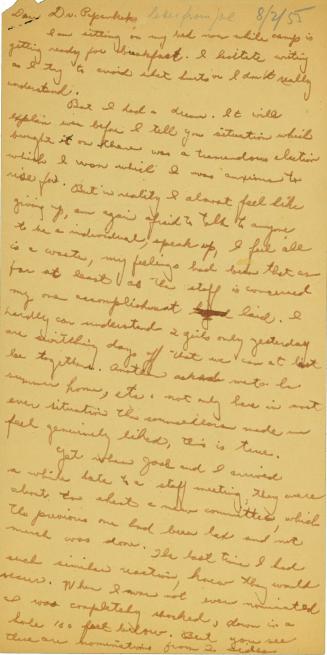 Dear Dr. Piperhkds letter from Joel 8/2/55
I am sitting on my bed now while camp is
getting ready for breakfast. I hesitate writing
as I try to avoid what hurts or I don't really
understand.
But I had a dream. It will
explain even before I tell you situation which
brought it on there was a tremendous election
which I won which I was anxious to
rise for. But in reality I almost feel like
giving up, am again afraid to talk to anyone
to be a individual, speak up, I feel all
is a waste, my feelings had been that as
far at least as the staff is concerned
my one accomplishment laid. I
hardly can understand 2 girls only yesterday
are switching days off that we can at last
be together. Another asked me to her
summer home, etc. not only here in most
ever situation the counsellors made me
feel genuinely liked, this is true.
Yet when Joel and I arrived
a while late to a staff meeting, they were
about to elect a new committee, which
the previous one had been bad and not
much was done. The last time I had
such similar reaction, knew they would
. When I was not even nominated
I was completely shocked, down in a
hole 100 feet below. But you see
there are nominations from 2 sides